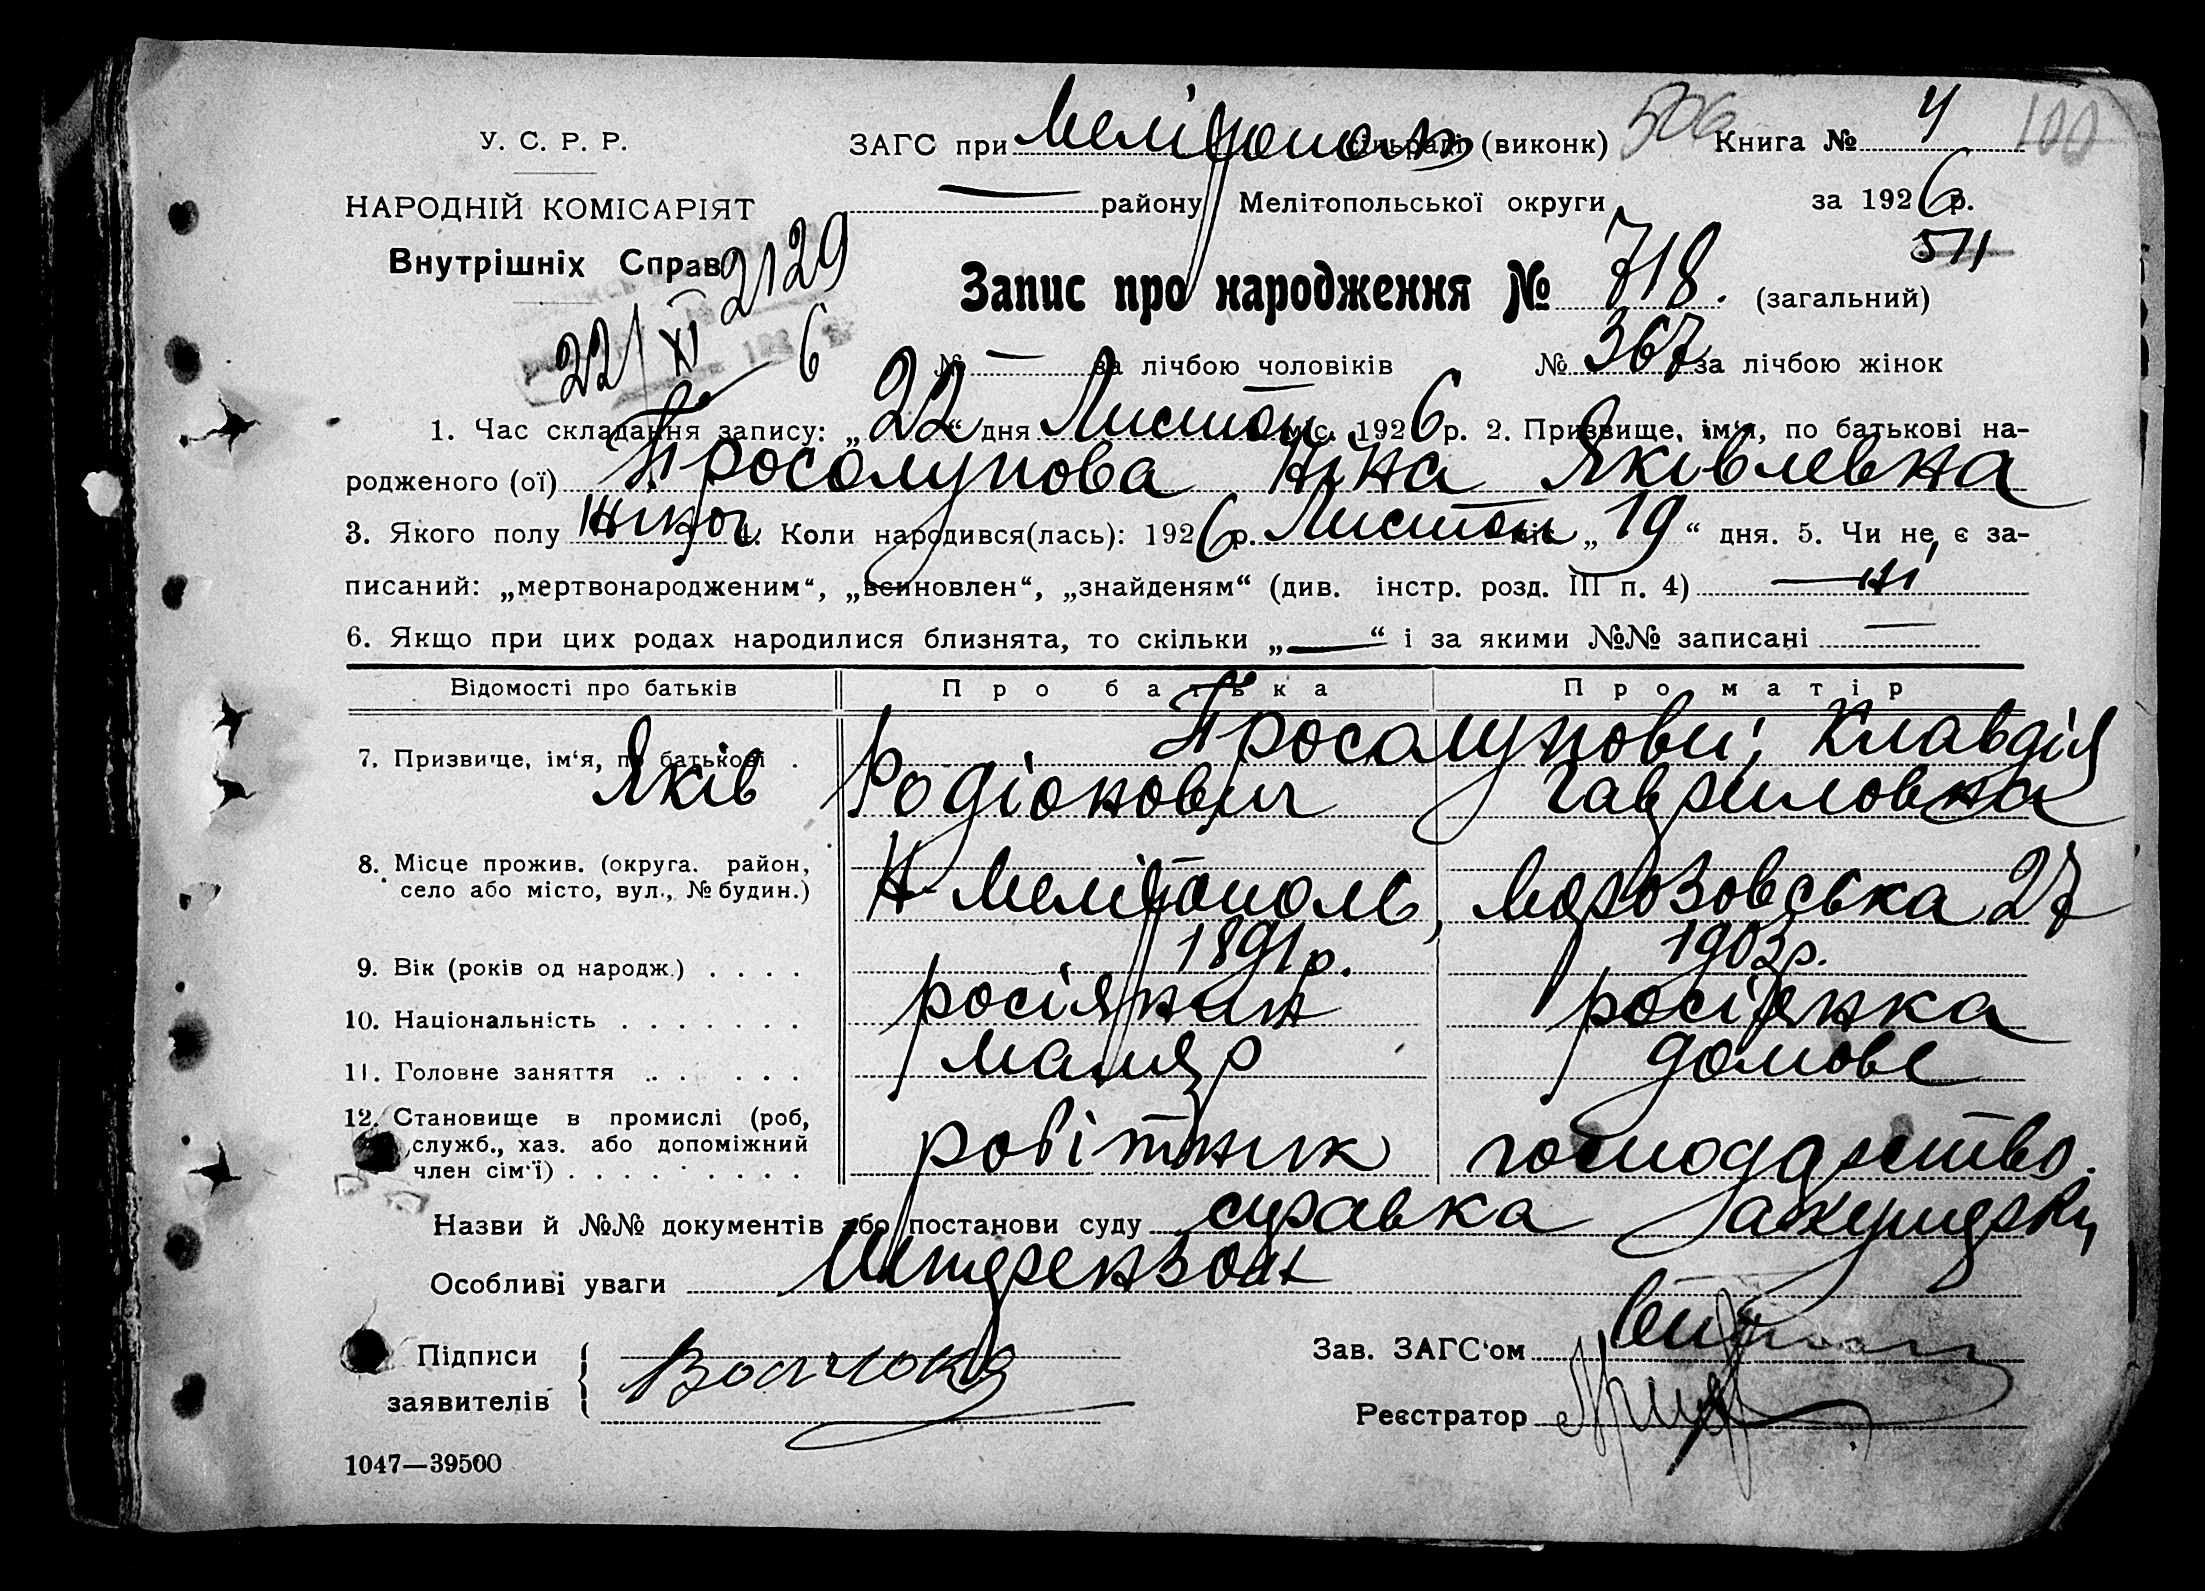 506 100
У. С. Р. Р. ЗАГС при Мелітополь сільраді (виконк) Книга № 4
НАРОДНІЙ КОМІСАРІЯТ — району Мелітопольської округи за 1926 р.
Внутрішніх Справ 2129 511
Запис про народження № 718. (загальний)
22/XI 6
№ — за лічбою чоловіків № 367 за лічбою жінок
1. Час складання запису: „22“ дня Листоп міс. 1926 р. 2. Призвище, ім‘я, по батькові на-
родженого (ої) Просолупова Ніна Яківлевна
3. Якого полу жіноч. 4. Коли народився(лась): 1926 р. Листоп міс „19“ дня. 5. Чи не є за-
писаний: „мертвонародженим“, „всиновлен“, „знайденям“ (див. інстр. розд. III п. 4) — ні
6. Якщо при цих родах народилися близнята, то скільки „—“ і за якими №№ записані —
Відомості про батьків Про батька Про матір
7. Призвище, ім‘я, по батькові . Просолупови; Клавдія
Яків Родіонович Гавриловна
8. Місце прожив. (округа. район,
село або місто, вул., № будин.) Н-Мелітополь, Морозовська 27
9. Вік (років од народж.) . . . . 1891 р. 1903 р.
10. Національність . . . . . . . росіянин росіянка
11. Головне заняття . . . . . маляр домове
12. Становище в промислі (роб,
служб., хаз. або допоміжний
член сім‘ї) . . . . . . . . робітник господарство.
Назви й №№ документів або постанови суду справка акушерки
Особливі уваги Штерензон
Підписи
заявителів
Зав. ЗАГС‘ом
Реєстратор
1047—39500